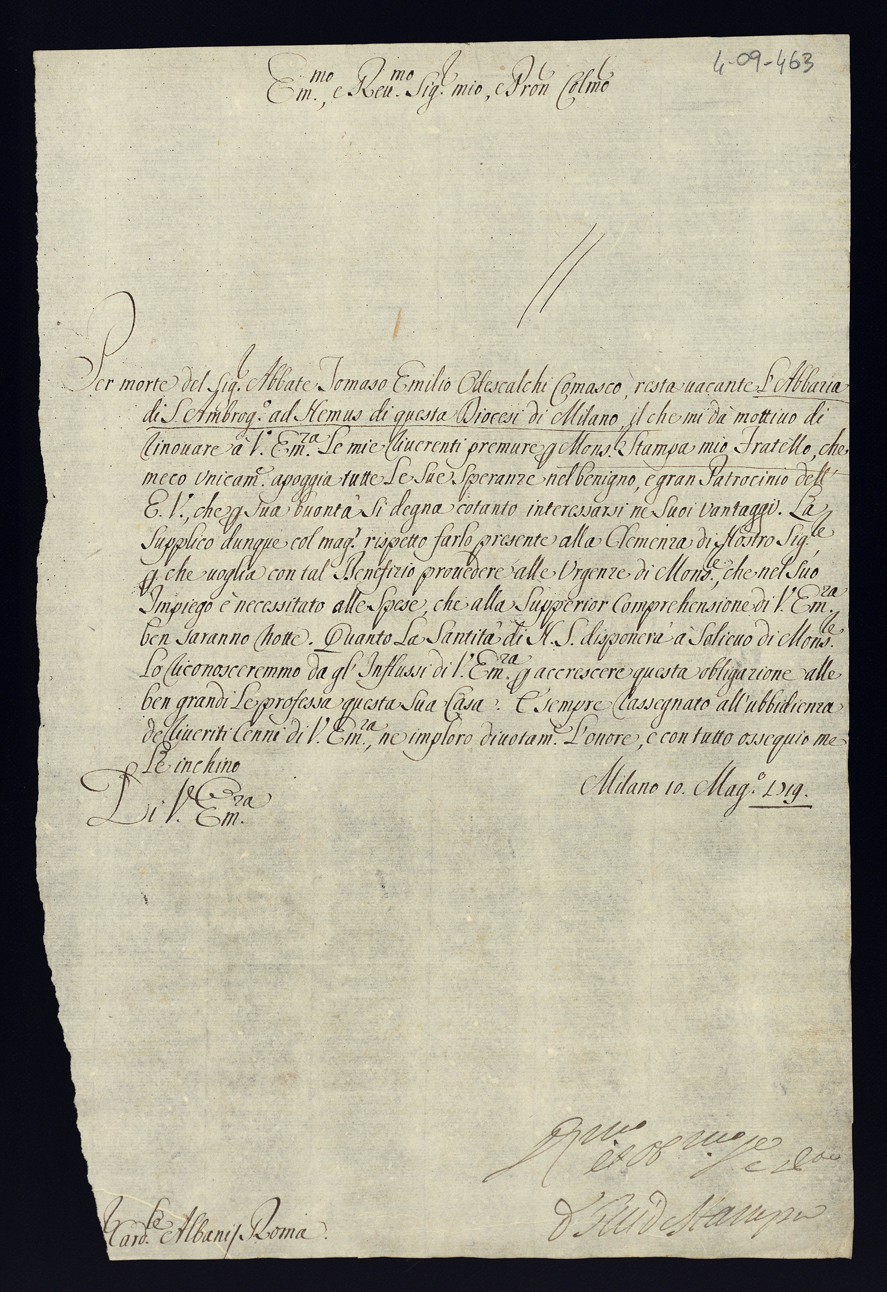 4-09-463
Em.mo, e Reu.mo Sig.r mio, e Pron Colmo
Per morte del Sig.r Abbate Tomaso Emilio Odescalchi Comasco, resta uacante L'Abbazia
di S. Ambrog.o ad Nemus di questa Diocesi di Milano, il che mi dà mottiuo di
rinouare à V. Em.za Le mie riuerenti premure p Mons.r Stampa mio Fratello, che
meco Vnicam.e apoggia tutte Le Sue Speranze nel benigno, e gran Patrocinio dell'
E. V., che p Sua buontà Si degna cotanto interessarsi ne Suoi Vantaggi. La
Supplico dunque col mag.r rispetto farlo presente alla Clemenza di Nostro Sig.re
p che uoglia con tal Benefizio prouedere alle Vrgenze di Mons.re, che nel Suo
Impiego è necessitato alle Spese, che alla Supperior Comprehensione di V. Em.za
ben Saranno Notte. Quanto La Santità di N. S. disponerà à Solieuo di Mons.re
Lo riconosceremmo da gl'Influssi di V. Em.za p accrescere questa obligazione alle
ben grandi Le professa questa Sua Casa. E sempre rassegnato all'ubbidienza
de riueriti Cenni di V. Em.za, ne imploro diuotam.e L'onore, e con tutto ossequio me
Le inchino
Milano 10. Mag.o 1719.
Di V. Em.za
Card.le Albani / Roma.
Stampa